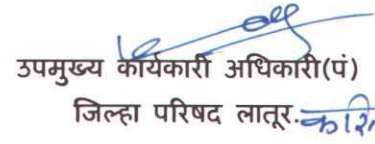 उपमुख्य कार्यकारी अधिकारी(पं)
जिल्हा परिषद लातूर.